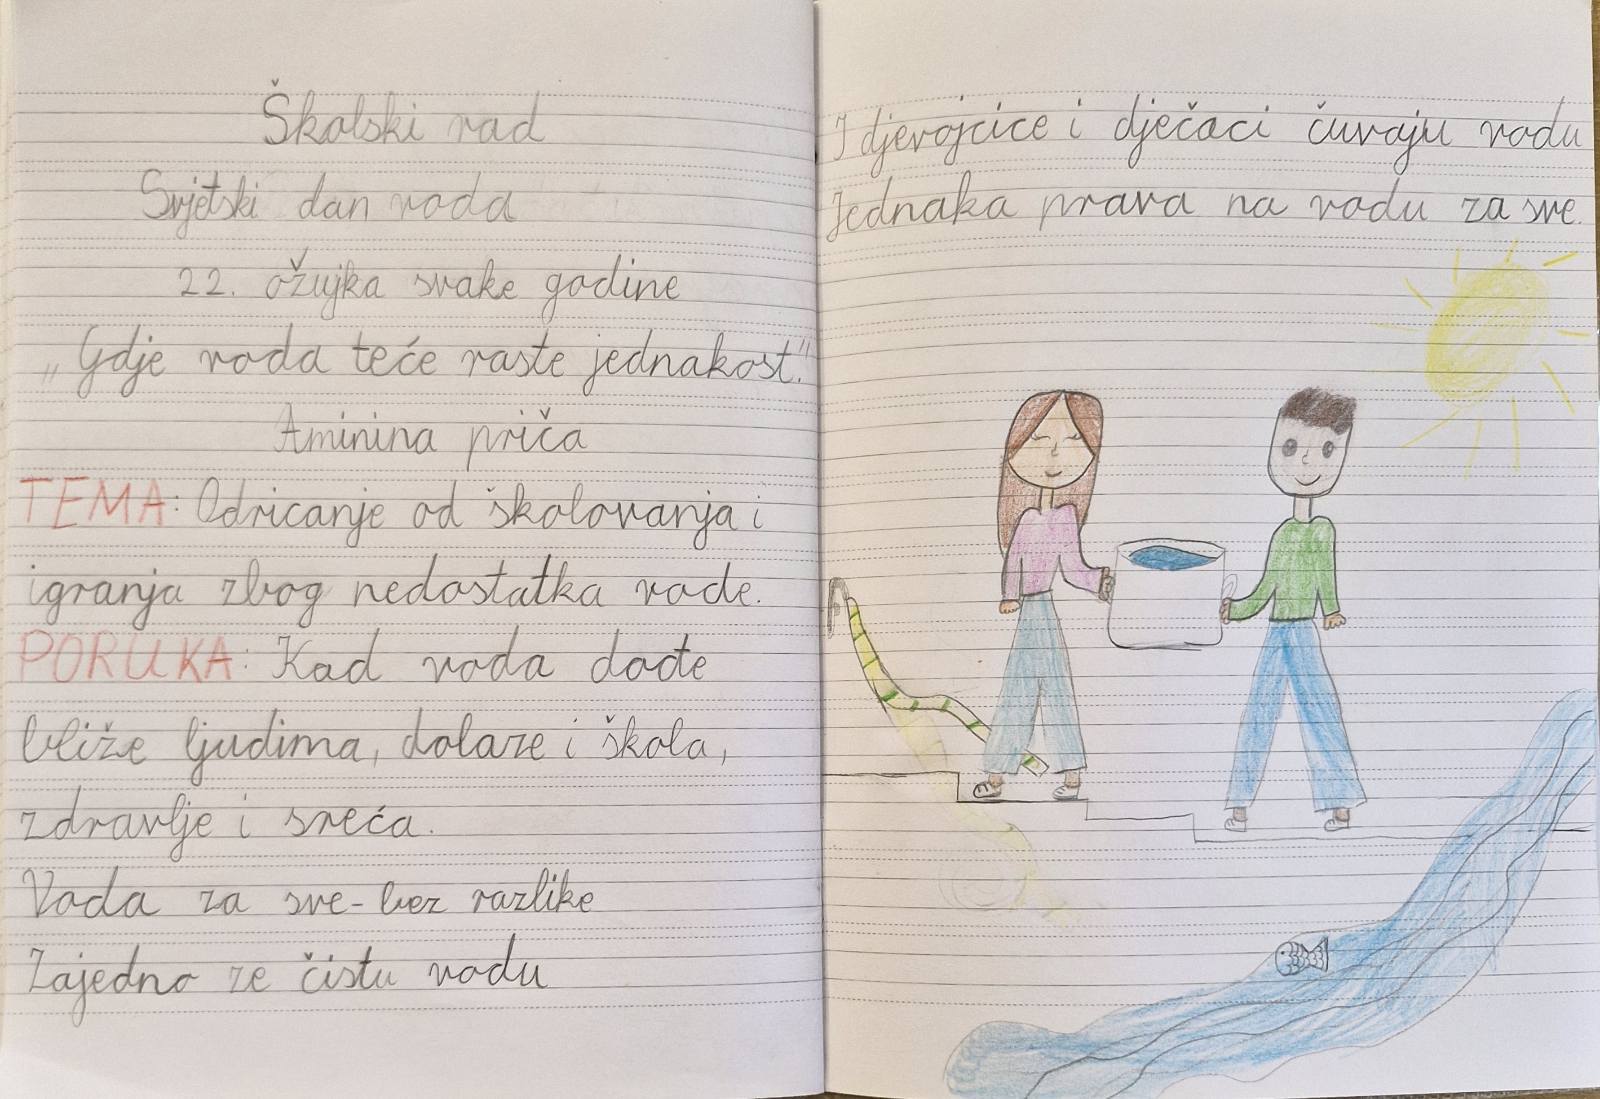 Školski rad
Svjetski dan voda
22. ožujka svake godine
„Gdje voda teće raste jednakost."
Aminina priča
TEMA: Odricanje od školovanja i
igranja zbog nedostatka vode.
PORUKA: Kad voda dođe
bliže ljudima, dolaze i škola,
zdravlje i sreća.
Voda za sve-bez razlike
Zajedno ze čistu vodu
I djevojcice i dječaci čuvaju vodu
Jednaka prava na vodu za sve.